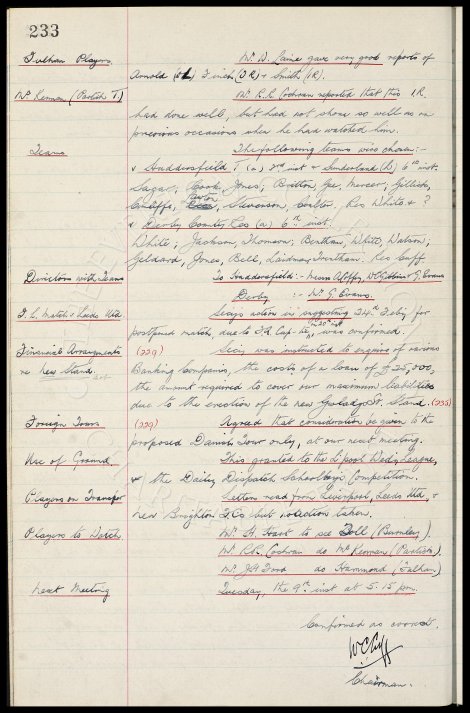 233
Fulham Players. Mr. D. Laine gave very good reports of
Arnold (OL) Finch (IR) + Smith (IR).
Mr. Kernan (Partick T.) Mr. R.R. Cochran reported that this I R
had done well, but had not shone so well as on
previous occasions when he had watched him.
Teams The following teams were chosen:-
v Huddersfield T (a) 3rd inst + Sunderland (h) 6th inst.
Sagar; Cook, Jones; Britton, Gee, Mercer; Gillick,
Cunliffe, Stevenson, Coulter. Res White + ?
v Derby County Res (a) 6th inst.
White; Jackson, Thomson; Bentham, White, Watson;
Geldard, Jones, Bell, Laidman, Res Cuff
Directors with Teams To Huddersfield:- Messrs W.C. Gibbins + G. Evans
Derby :- Mr. G. Evans.
F.L. Match v Leeds Utd Secy's action in suggesting 24th Feby for
postponed match, due to F.A. Cup-tie on 20th inst, was confirmed.
Financial Arrangements (229) Secy was instructed to enquire of various
re New Stand. Banking Companies, the costs of a loan of £25,000,
the amount required to cover our maximum liabilities
due to the erection of the new Gwladys St. Stand. (235)
Foreign Tours. (229) Agreed that consideration be given to the
proposed Danish Tour only, at our next meeting.
Use of Ground. This granted to the L'pool Wed'y League,
+ the Daily Dispatch Schoolboys Competition.
Players on Transfer Letters read from Liverpool, Leeds Utd, +
New Brighton F.Cs but no action taken.
Players to Watch Mr. A. Coast to see Toll (Burnley).
Mr. R.R. Cochran do Mc Kernan (Partick).
Mr. J.A. Ford do Hammond (Fulham)
Next Meeting Tuesday, the 9th inst at 5.15 pm.
Confirmed as correct.
W C Cuff
Chairman.